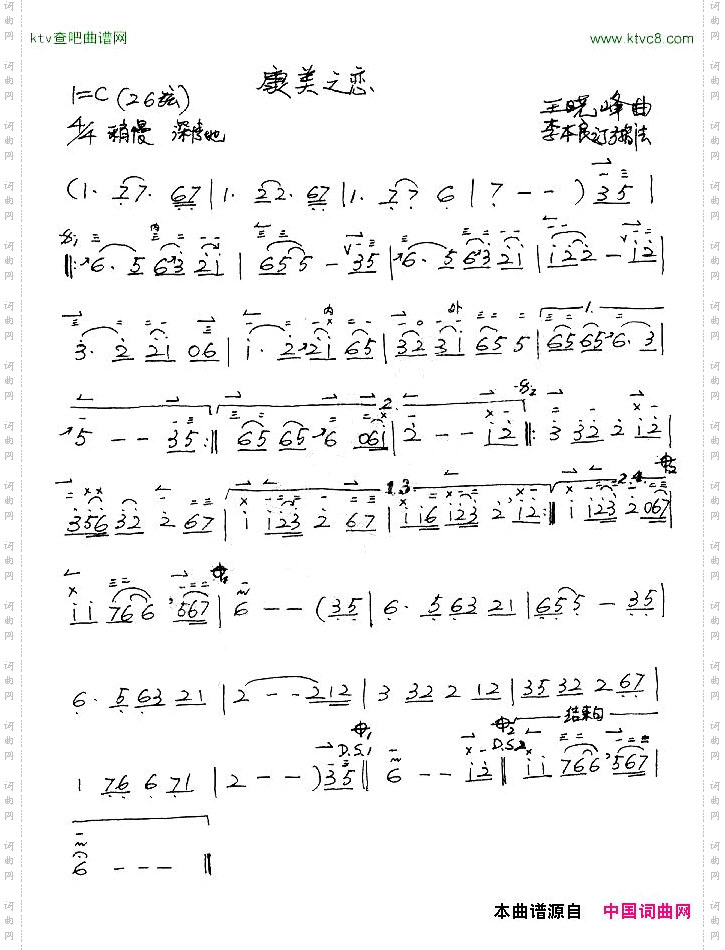 ktv查吧曲谱网
www.ktvc8.com
康美之恋
1=C (26弦)
王晓峰曲
4/4 稍慢 深情地
李本良订指法
(1. 77. 67 | 1. 22. 67 | 1. 77 6 | 7 - - ) 35 |
‖: 6. 5 63 21 | 655 - 35 | 6. 5 63 21 | 122 - 12 |
内
3. 2 21 06 | 1. 2 21 65 | 32 31 655 5 | 6565 6. 3
内 外 1.
5 - - 35 :‖ 65 65 6 061 | 2 - - 12 ‖: 3 32 2 12 |
2.
356 32 2 67 | 1 123 2 67 | 116 123 2 12 :‖ 1 123 2 067 |
1.3 2.4.
11 766 567 | 6 - - (35 | 6. 5 63 21 | 655 - 35 |
6. 5 63 21 | 2 - - 212 | 3 32 2 12 | 35 32 2 67 |
结束句
D.S.1 D.S.2
1 76 6 71 | 2 - - ) 35 ‖ 6 - - 12 ‖ 11 766 567 |
6 - - - ‖
本曲谱源自 中国词曲网
词曲网